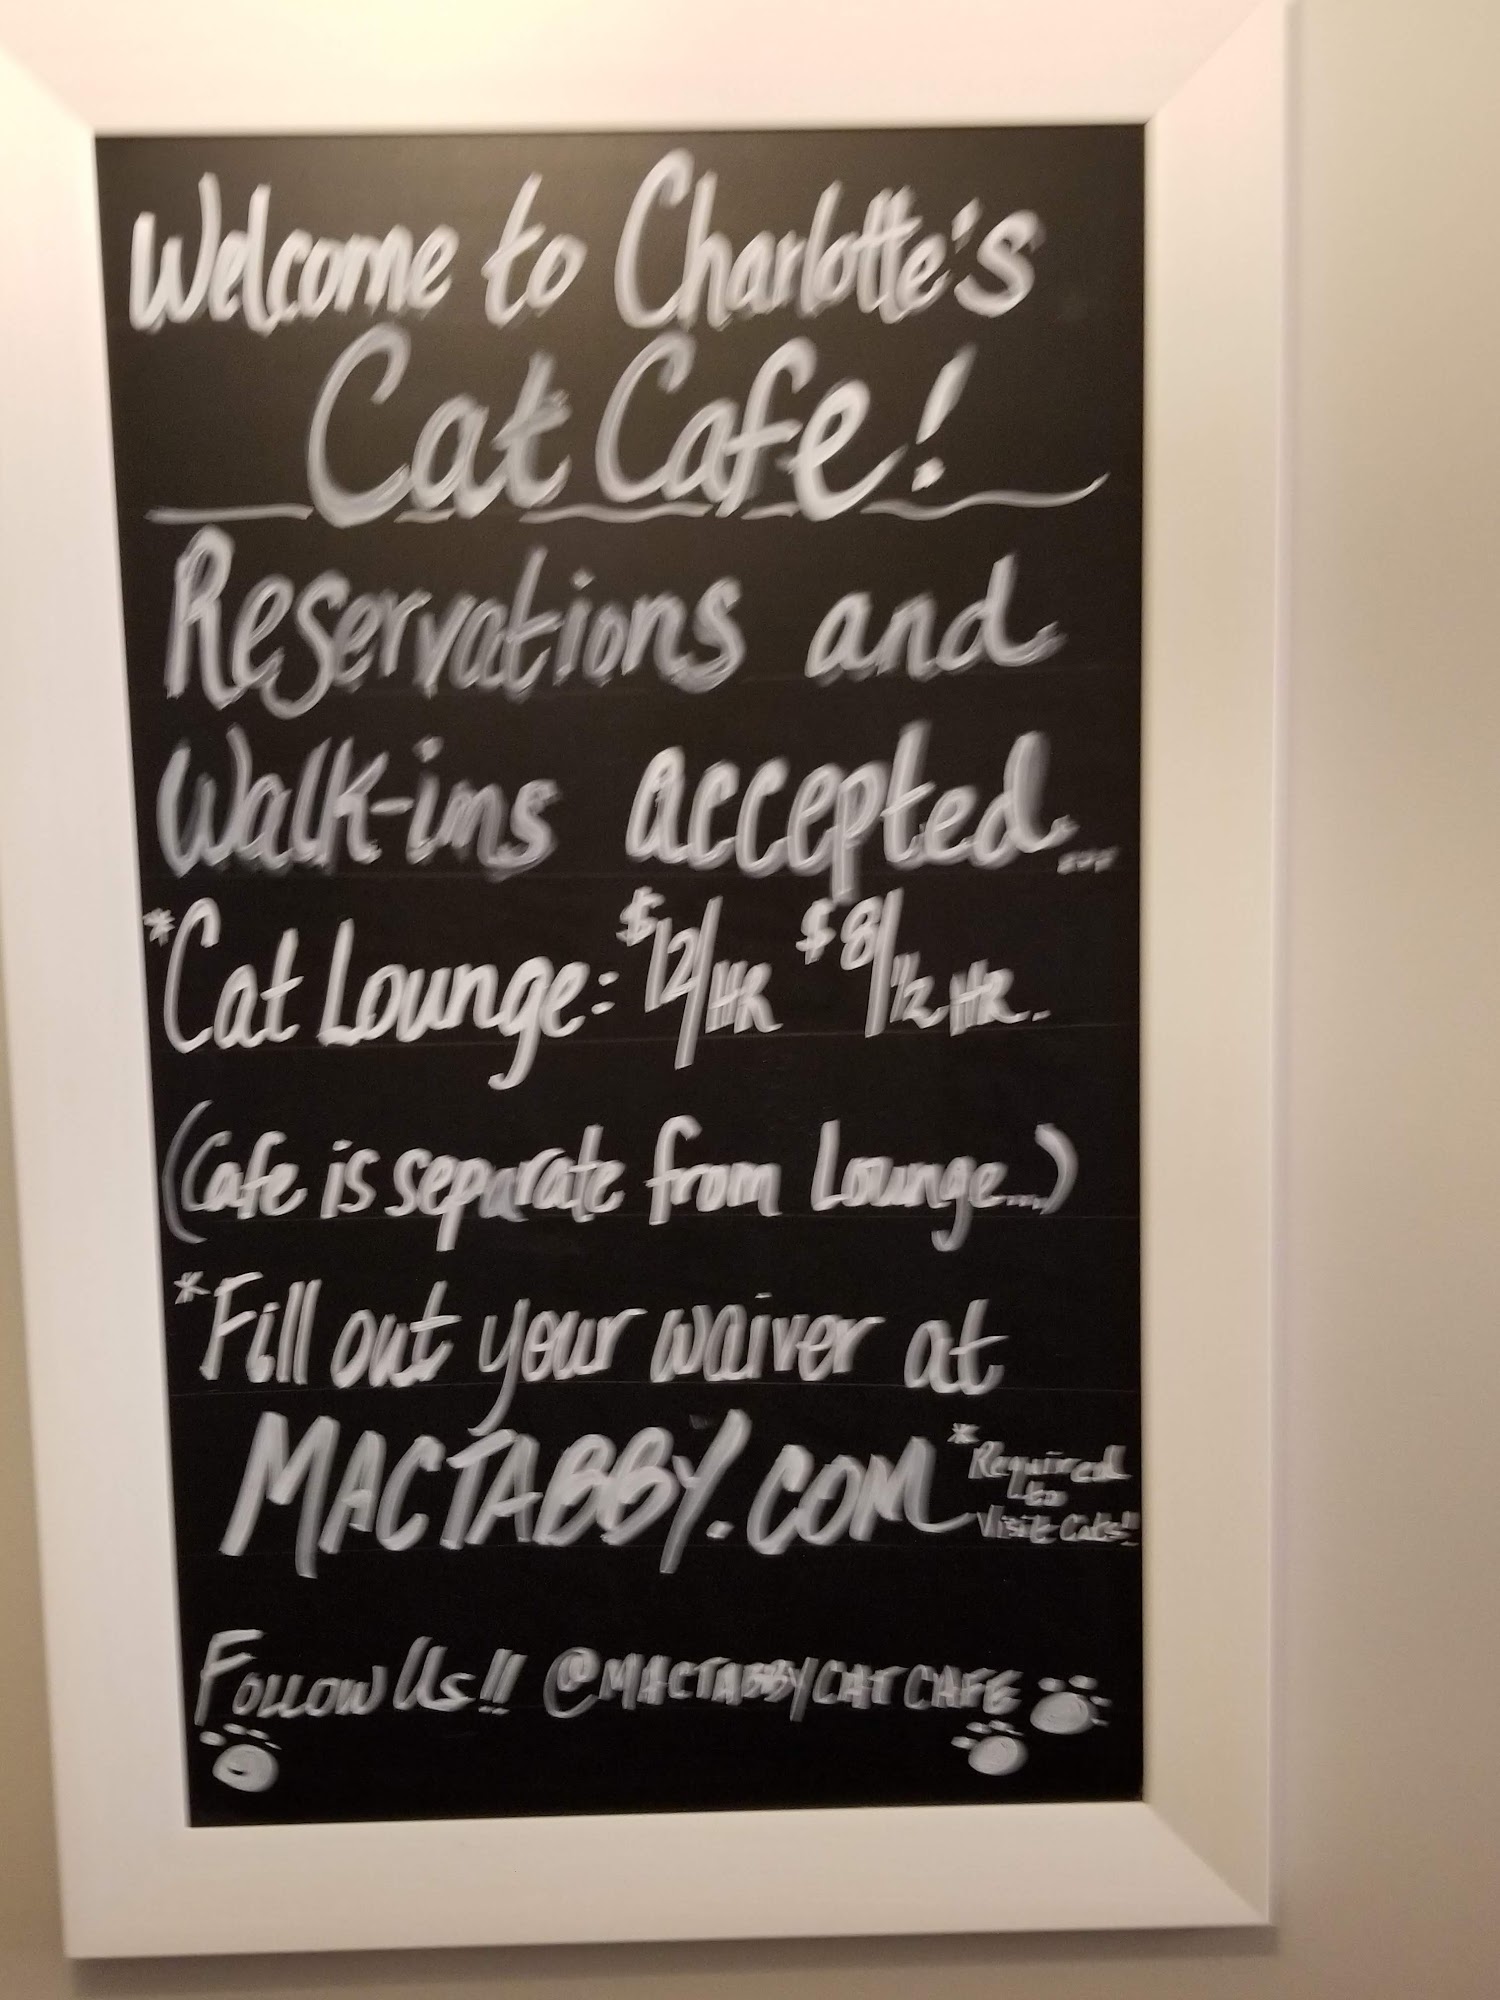 Welcome to Charlotte's
Cat Cafe!
Reservations and
Walk-ins accepted...
*Cat Lounge: $12/HR $8/½ HR.
(Cafe is separate from Lounge....)
*Fill out your waiver at
MACTABBY.COM
*Required
to
Visit Cats!!
Follow Us!! @MACTABBYCATCAFE